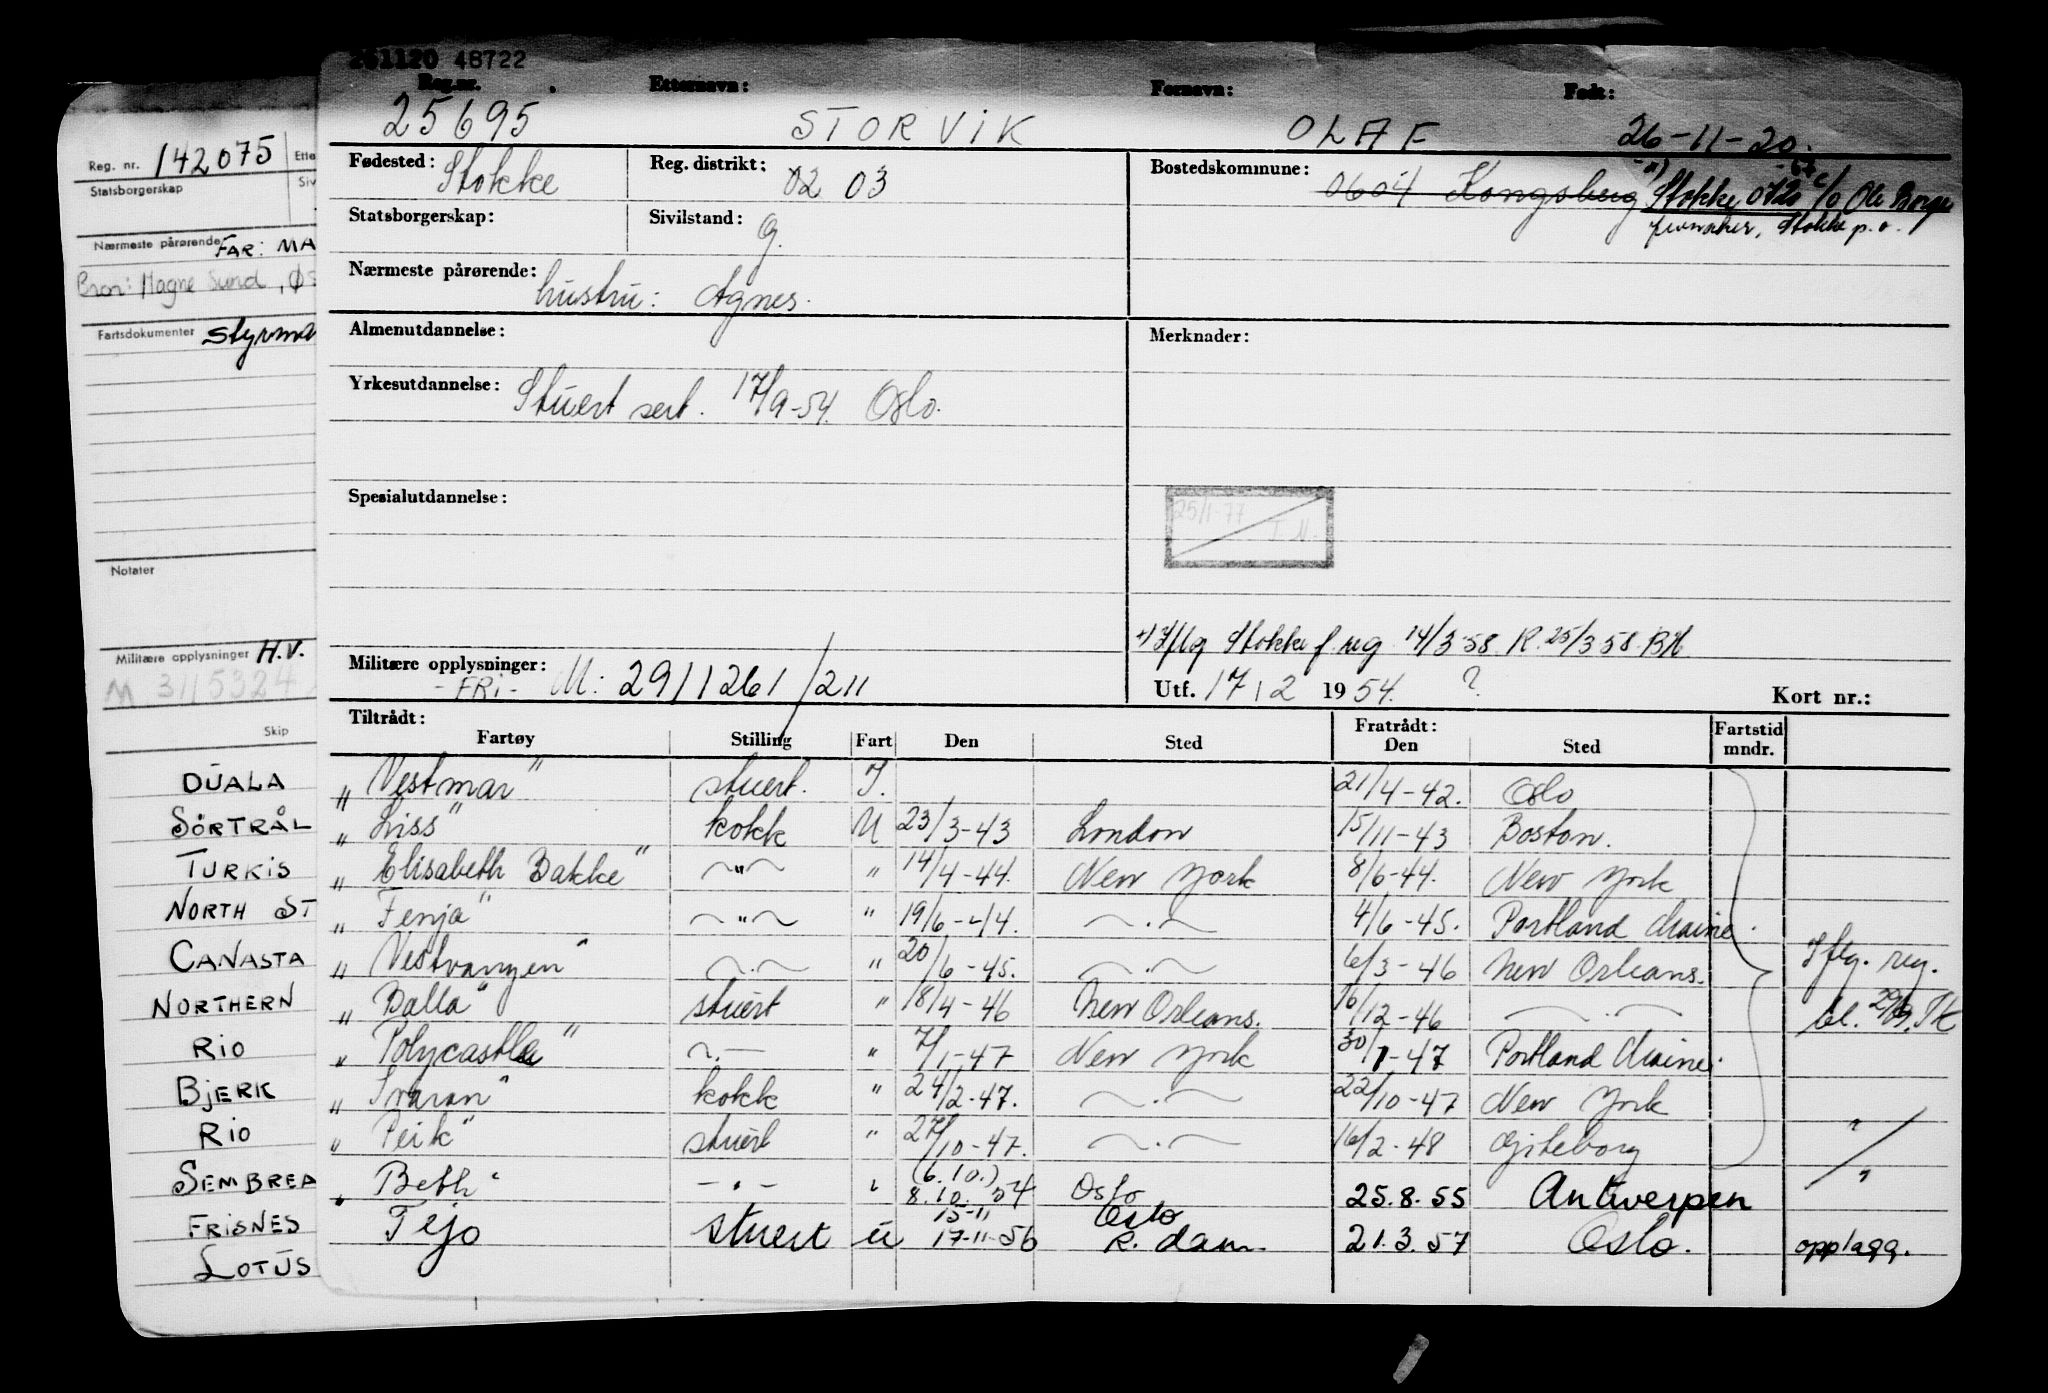 261120 48722
Reg.nr. Etternavn: Fornavn: Født:
25695 STORVIK OLAF 26-11-20.
Fødested: Stokke Reg. distrikt: 02 03 Bostedskommune: 0604 Kongsberg Stokke 0720 c/o Ole Borge
Stokke p.o.
Statsborgerskap: Sivilstand: g.
Nærmeste pårørende: hustru: Agnes.
Almenutdannelse: Merknader:
Yrkesutdannelse: Stuert sert. 17/9-54. Oslo.
Spesialutdannelse:
25/1-77 T.N.
+) Iflg Stokke f. reg 14/3 58. R. 25/3 58. BH
Militære opplysninger: -FRi- M: 2911261/211
Utf. 17/2 1954. ? Kort nr.:
Tiltrådt: Fratrådt: Fartstid
Fartøy Stilling Fart Den Sted Den Sted mndr.
„ Vestmar" stuert. I. 21/4-42. Oslo
„ Liss" kokk U 23/3-43 London 15/11-43 Boston.
„ Elisabeth Bakke" ~"~ " 14/4-44. New York 8/6-44. New York
„ Fenja" ~"~ " 19/6-44. ~.~ 4/6-45. Portland Maine.
„ Vestvangen" ~.~ " 20/6-45. ~.~ 6/3-46 New Orleans.
„ Balla" stuert " 18/4-46 New Orleans. 16/12-46 ~.~
„ Polycastle" ~.~ " 7/1-47 New York 30/1-47 Portland Maine.
„ Svaran" kokk " 24/2-47. ~.~ 22/10-47 New York
„ Peik" stuert " 27/10-47. ~.~ 16/2-48 Gøteborg "
Iflg. reg.
„ Beth" -"- " (6.10.) 8.10.54 Oslo 25.8.55 Antwerpen "
Tejo stuert u 15-11 17-11-56 Oslo R.dam 21.3.57 Oslo. opplagg.
Reg. nr. 142075 Ette
Statsborgerskap Siv
Nærmeste pårørende FAR: MA
Bror: Magne Sund, Øs
Fartsdokumenter styrma
Notater
Militære opplysninger H.V.
M 3115324
Skip
DUALA
SÖRTRÅL
TURKIS
NORTH ST
CANASTA
NORTHERN
RIO
BJERK
RIO
SEMBREA
FRISNES
LOTUS